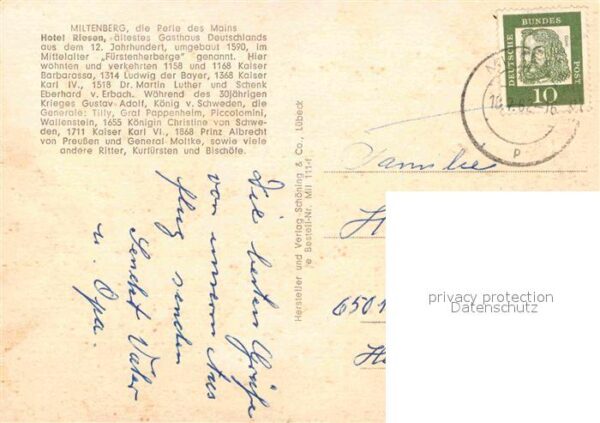 MILTENBERG, die Perle des Mains
Hotel Riesen, ältestes Gasthaus Deutschlands
aus dem 12. Jahrhundert, umgebaut 1590, im
Mittelalter „Fürstenherberge" genannt. Hier
wohnten und verkehrten 1158 und 1168 Kaiser
Barbarossa, 1314 Ludwig der Bayer, 1368 Kaiser
Karl IV., 1518 Dr. Martin Luther und Schenk
Eberhard v. Erbach. Während des 30jährigen
Krieges Gustav-Adolf, König v. Schweden, die
Generale: Tilly, Graf Pappenheim, Piccolomini,
Wallenstein, 1655 Königin Christine von Schwe-
den, 1711 Kaiser Karl VI., 1868 Prinz Albrecht
von Preußen und General Moltke, sowie viele
andere Ritter, Kurfürsten und Bischöfe.
Die besten Grüße
von unserem Aus
flug senden
Sendet Vater
u. Opa.
Hersteller und Verlag Schöning & Co., Lübeck
Bestell-Nr. Mil 111-f
DEUTSCHE
BUNDES
POST
10
Familie
H
6501
privacy protection
Datenschutz